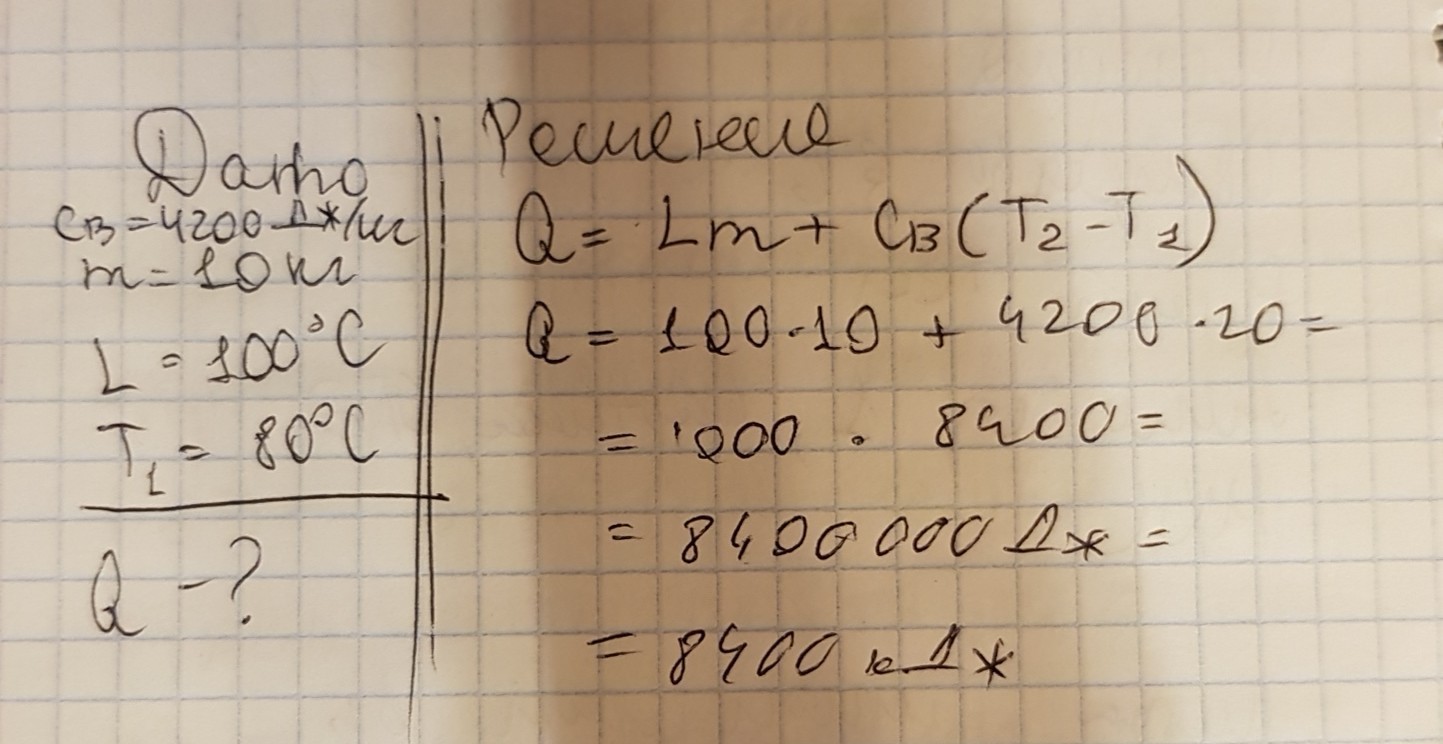 Дано
Cв=4200 Дж/кг
m=10кг
L=100°C
T₁=80°C
Q-?
Решение
Q=Lm+Cв(T₂-T₁)
Q=100·10+4200·20=
=1000·8400=
=8400000Дж=
=8400кДж